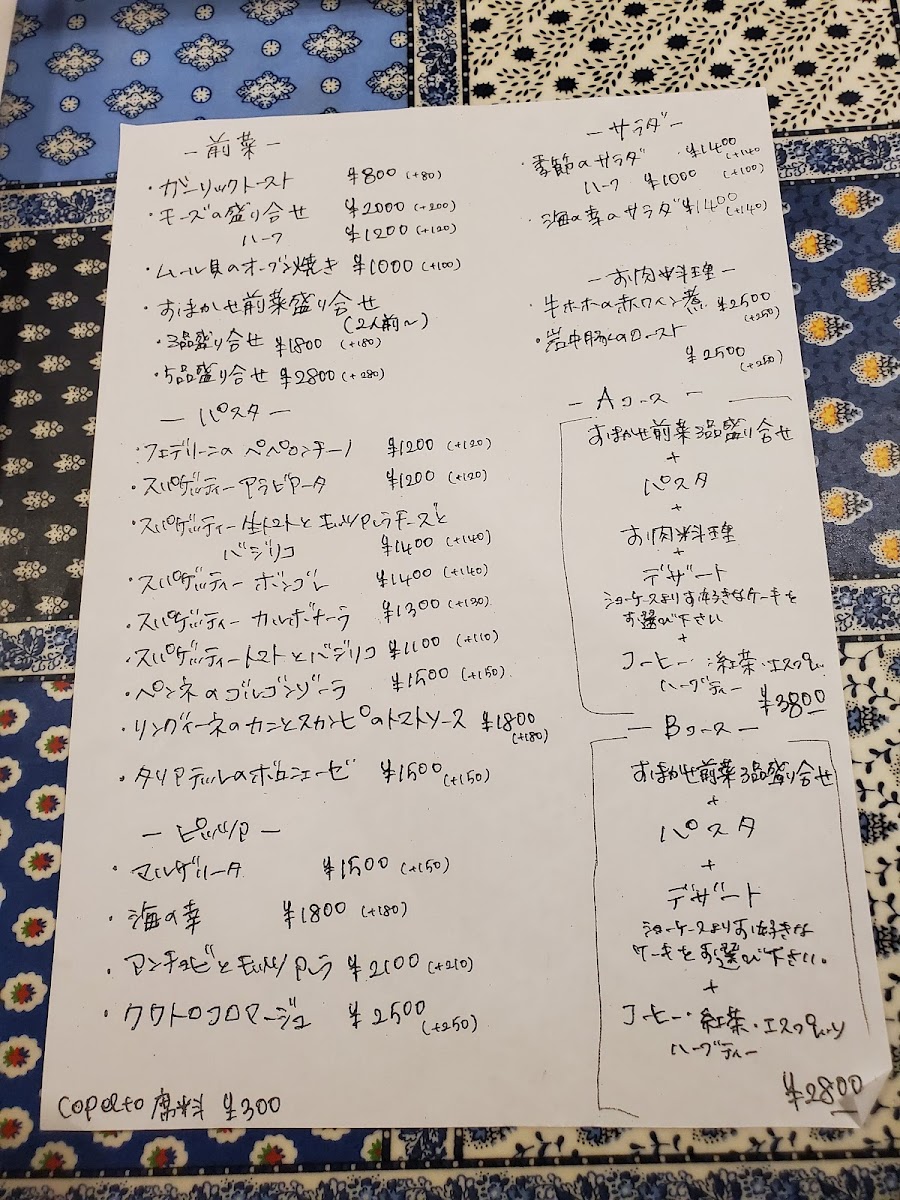 ー前菜ー
・ガーリックトースト ¥800 (+80)
・チーズの盛り合せ ¥2000 (+200)
ハーフ ¥1200 (+120)
・ムール貝のオーブン焼き ¥1000 (+100)
・おまかせ前菜盛り合せ
(2人前〜)
・3品盛り合せ ¥1800 (+180)
・5品盛り合せ ¥2800 (+280)
ー パスタ ー
・フェデリーニのペペロンチーノ ¥1200 (+120)
・スパゲッティーアラビアータ ¥1200 (+120)
・スパゲッティー生トマトとモッツァレラチーズと
バジリコ ¥1400 (+140)
・スパゲッティー ボンゴレ ¥1400 (+140)
・スパゲッティー カルボナーラ ¥1300 (+130)
・スパゲッティートマトとバジリコ ¥1100 (+110)
・ペンネのゴルゴンゾーラ ¥1500 (+150)
・リングイーネのカニとスカンピのトマトソース ¥1800
(+180)
・タリアテッレのボロニェーゼ ¥1500 (+150)
ー ピッツァ ー
・マルゲリータ ¥1500 (+150)
・海の幸 ¥1800 (+180)
・アンチョビとモッツァレラ ¥2100 (+210)
・クワトロフロマージュ ¥2500
(+250)
席料 ¥300
ー サラダ ー
・季節のサラダ ¥1400
(+140)
ハーフ ¥1000 (+100)
・海の幸のサラダ ¥1400 (+140)
ー お肉料理 ー
・牛ホホの赤ワイン煮 ¥2500
(+250)
・岩中豚のロースト
¥2500
(+250)
ー Aコース ー
おまかせ前菜3品盛り合せ
+
パスタ
+
お肉料理
+
デザート
ショーケースよりお好きなケーキを
お選び下さい
+
コーヒー・紅茶・エスプレッソ
ハーブティー
¥3800
ー Bコース ー
おまかせ前菜3品盛り合せ
+
パスタ
+
デザート
ショーケースよりお好きな
ケーキをお選び下さい。
+
コーヒー・紅茶・エスプレッソ
ハーブティー
¥2800